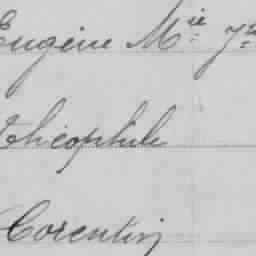 Eugène Mie
Théophile
Corentin